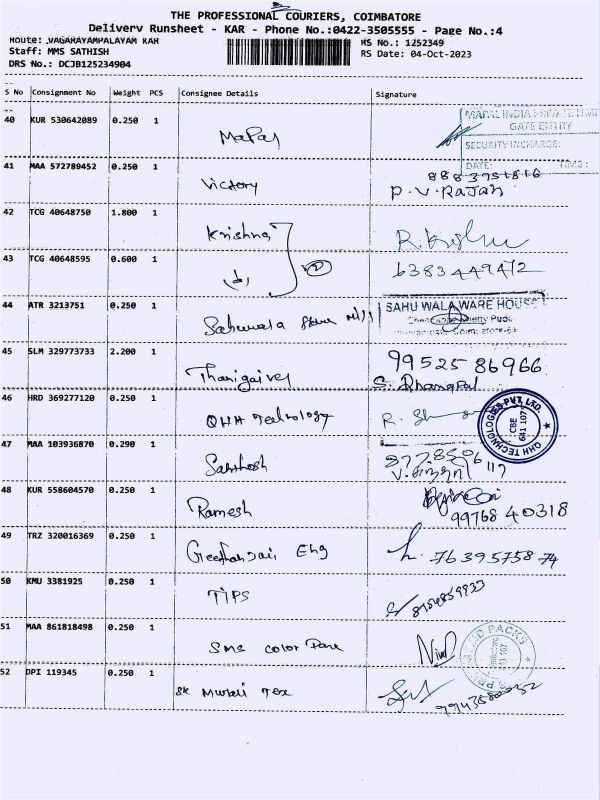 THE PROFESSIONAL COURIERS, COIMBATORE
Delivery Runsheet - KAR - Phone No.:0422-3505555 - Page No.:4
Route: VAGARAYAMPALAYAM KAR
RS No.: 1252349
Staff: MMS SATHISH
RS Date: 04-Oct-2023
DRS No.: DCJB125234904
S No Consignment No Weight PCS Consignee Details Signature
40 KUR 530642089 0.250 1 Mapal
MAPAL INDIA PRIVATE LIMI
GATE ENTRY
SECURITY INCHARGE:
DATE: TIME:
41 MAA 572789452 0.250 1 Victory
P.V. RAJAN
42 TCG 40648750 1.800 1 Krishna
43 TCG 40648595 0.600 1
44 ATR 3213751 0.250 1
SAHUWALA WARE HOUSE
45 SLM 329773733 2.200 1 Thanigaivel
99525 86966
S. Dhanapal
46 HRD 369277120 0.250 1 QHH Technology
QHH TECHNOLOGIES PVT. LTD.
CBE
641 107
47 MAA 103936870 0.290 1 Santhosh
48 KUR 558604570 0.250 1 Ramesh
99768 40318
49 TRZ 320016369 0.250 1
76395758 74
50 KMU 3381925 0.250 1 TIPS
51 MAA 861818498 0.250 1 SMS Color Park
52 DPI 119345 0.250 1 SK Murali Tex